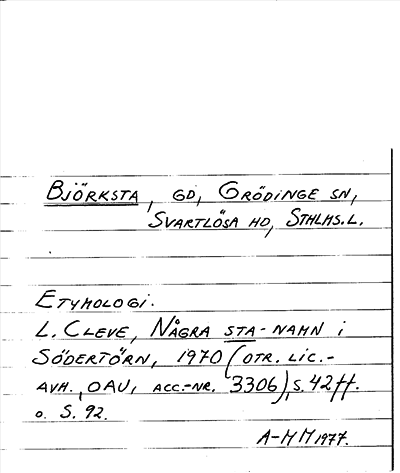 BJÖRKSTA, GD, GRÖDINGE SN,
SVARTLÖSA HD, STHLMS.L.
ETYMOLOGI.
L. CLEVE, NÅGRA STA-NAMN I
SÖDERTÖRN, 1970 (OTR. LIC.-
AVH., OAU, ACC.-NR. 3306), S. 42 ff.
o. S. 92.
A-M M 1977.